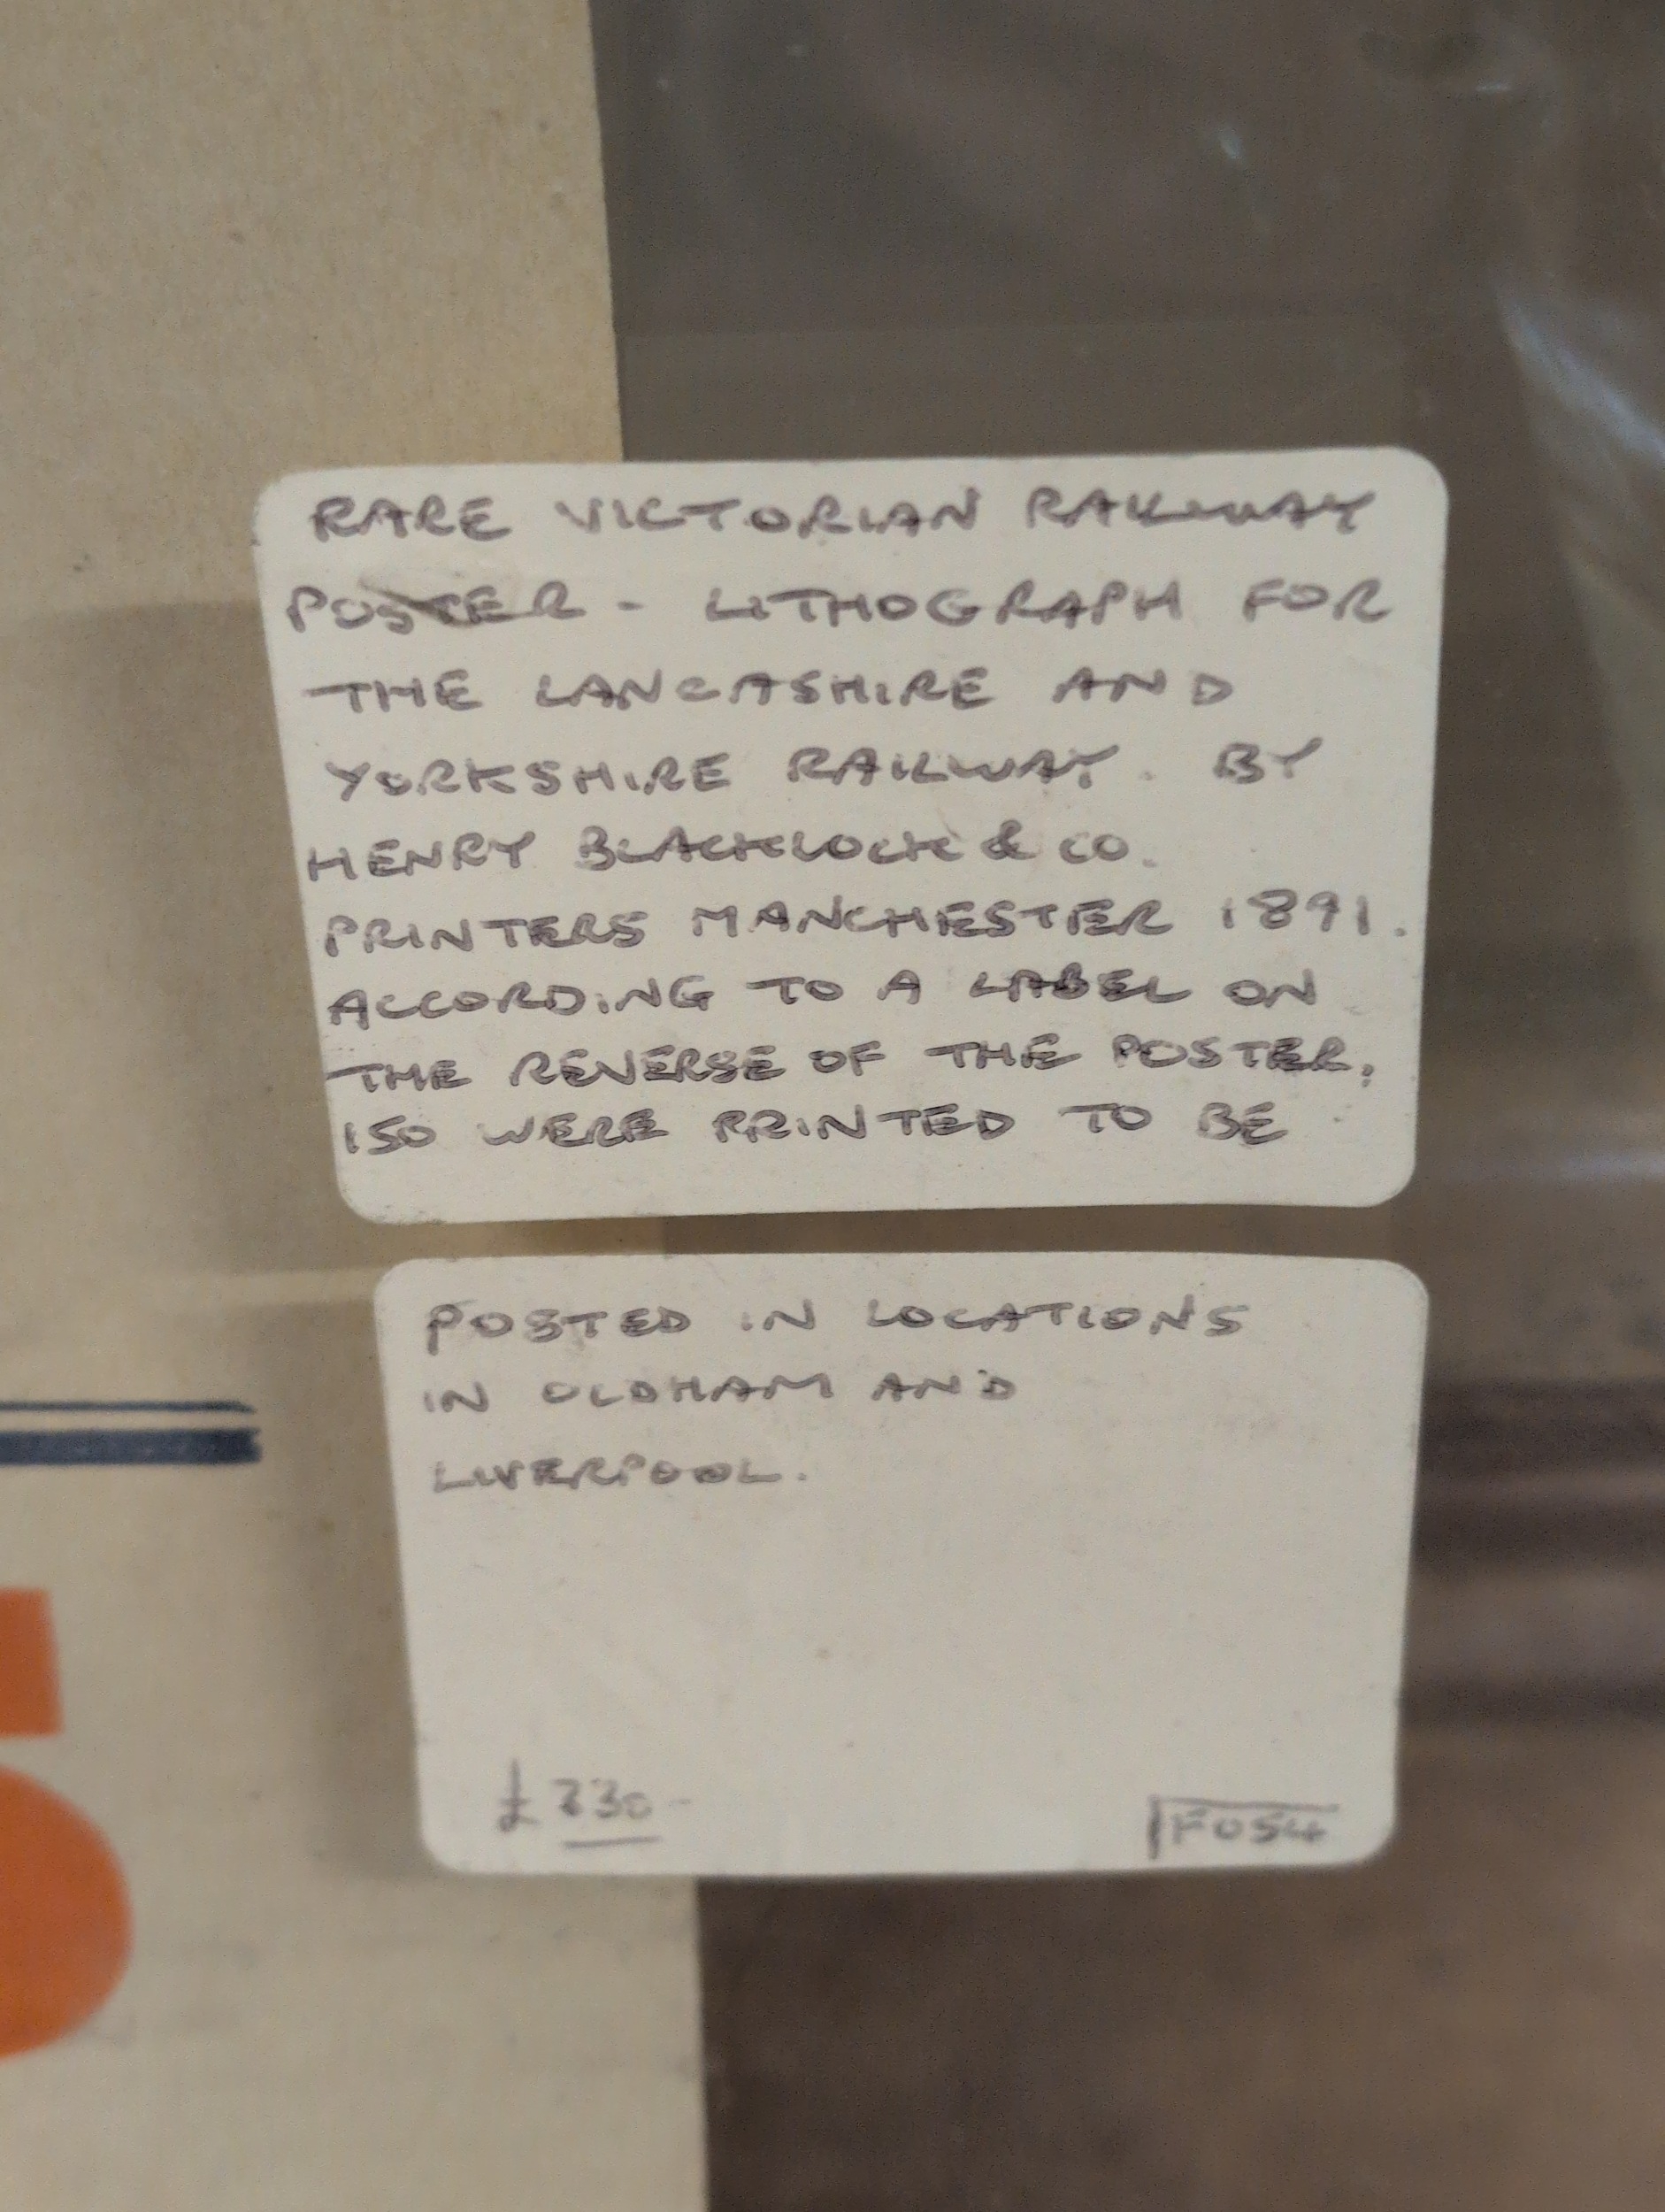 RARE VICTORIAN RAILWAY
POSTER - LITHOGRAPH FOR
THE LANCASHIRE AND
YORKSHIRE RAILWAY. BY
HENRY BLACKLOCK & CO.
PRINTERS MANCHESTER 1891.
ACCORDING TO A LABEL ON
THE REVERSE OF THE POSTER,
150 WERE PRINTED TO BE
POSTED IN LOCATIONS
IN OLDHAM AND
LIVERPOOL.
F054